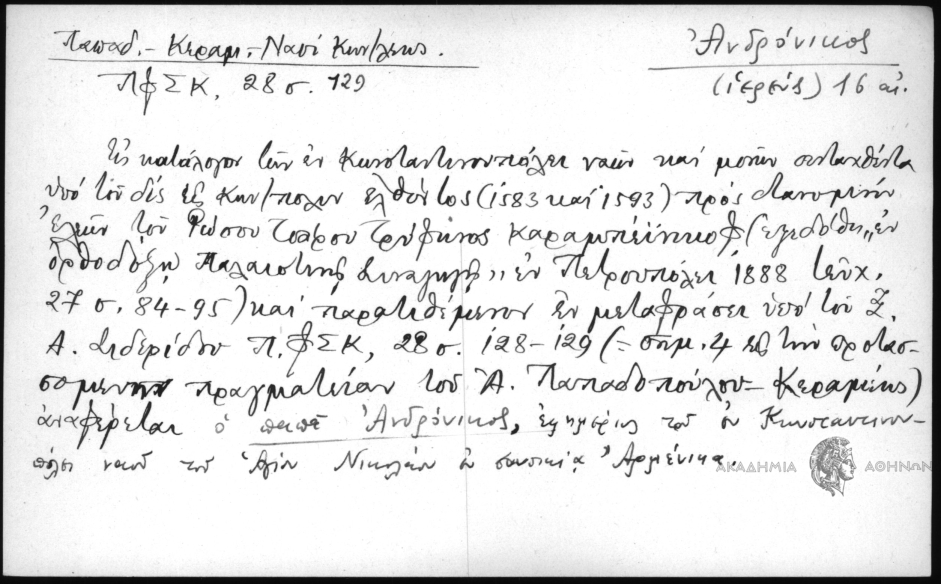 Παπαδ.- Κεραμ.- Ναοί Κων/λεως.
Ἀνδρόνικος
ΠΦΣΚ, 28 σ. 129
(ἱερεύς) 16 αἰ.
Εἰς κατάλογον τῶν ἐν Κωνσταντινουπόλει ναῶν καί μονῶν συνταχθέντα
ὑπό τοῦ δίς εἰς Κων/πολιν ἐλθόντος (1583 καί 1593) πρός διανομήν
ἐλεῶν τοῦ Ρώσου Τρύφωνος Καραμπέινικωφ (ἐξεδόθη "ἐν
ὀρθοδόξῳ Παλαιστινῆς Συναγωγῆς" ἐν Πετρουπόλει 1888 τεῦχ.
27 σ. 84-95) καί παρατιθέμενον ἐν μεταφράσει ὑπό τοῦ Ξ.
Α. Σιδερίδου Π.ΦΣΚ, 28 σ. 128-129 (= σημ. 4 εἰς τήν προτασ-
σομένην πραγματείαν τοῦ Ἀ. Παπαδοπούλου- Κεραμέως)
ἀναφέρεται ὁ παπᾶ Ἀνδρόνικος, ἐφημέριος τοῦ ἐν Κωνσταντινου-
πόλει ναοῦ τοῦ Ἁγίου Νικολάου ἐν συνοικίᾳ Ἀρμένικα.
ΑΚΑΔΗΜΙΑ ΑΘΗΝΩΝ